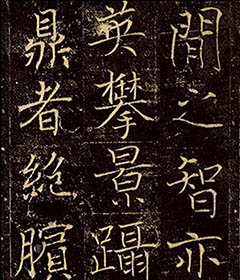 間之智亦
英攀景躡
鼎者絕臏